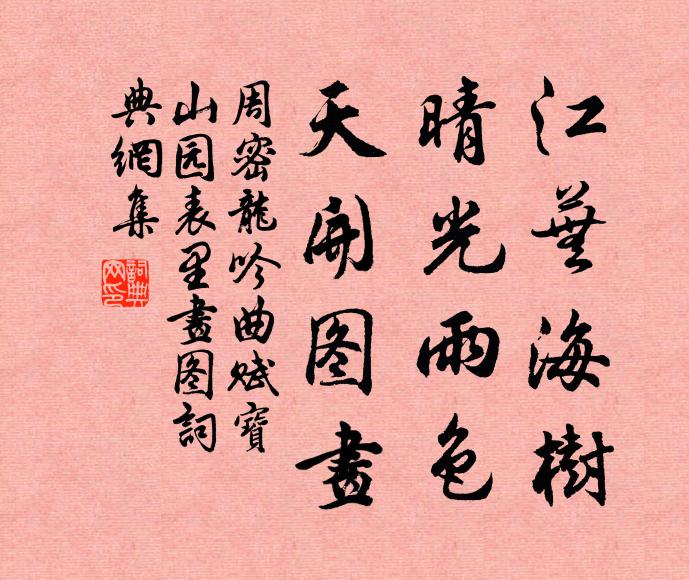 江蕪海樹
晴光雨色
天開图畫
周密龍吟曲賦寶
山园表里畫图詞
典網集
詞典網印